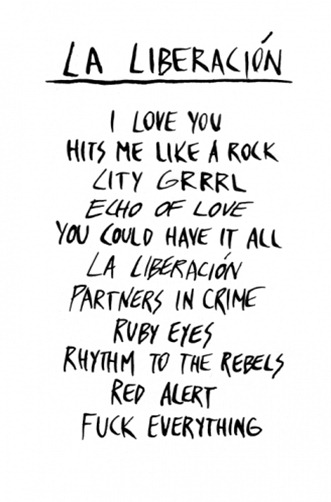 LA LIBERACIÓN
I LOVE YOU
HITS ME LIKE A ROCK
CITY GRRRL
ECHO OF LOVE
YOU COULD HAVE IT ALL
LA LIBERACIÓN
PARTNERS IN CRIME
RUBY EYES
RHYTHM TO THE REBELS
RED ALERT
FUCK EVERYTHING